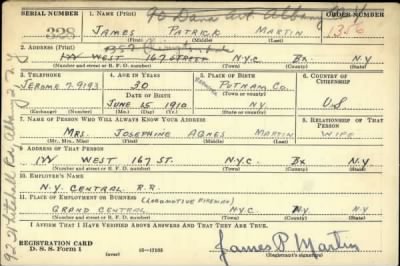 SERIAL NUMBER 1. NAME (Print) 90 Dana Ave. Albany N.Y. ORDER NUMBER
328 JAMES PATRICK MARTIN 1356
(First) (Middle) (Last)
2. ADDRESS (Print)
WEST 167 STREET N.Y.C. BX N.Y.
(Number and street or R. F. D. number) (Town) (County) (State)
3. TELEPHONE 4. AGE IN YEARS 5. PLACE OF BIRTH 6. COUNTRY OF CITIZENSHIP
JEROME 7-9193 30 PUTNAM CO.
DATE OF BIRTH (Town or county)
JUNE 15 1910 N.Y. U.S
(Exchange) (Number) (Mo.) (Day) (Yr.) (State or country)
7. NAME OF PERSON WHO WILL ALWAYS KNOW YOUR ADDRESS 8. RELATIONSHIP OF THAT PERSON
MRS. JOSEPHINE AGNES MARTIN WIFE
(Mr., Mrs., Miss) (First) (Middle) (Last)
9. ADDRESS OF THAT PERSON
WEST 167 ST. N.Y.C. BX N.Y
(Number and street or R. F. D. number) (Town) (County) (State)
10. EMPLOYER'S NAME
N.Y. CENTRAL R.R.
11. PLACE OF EMPLOYMENT OR BUSINESS (LOCOMOTIVE FIREMAN)
GRAND CENTRAL N.Y.C. NY N.Y
(Number and street or R. F. D. number) (Town) (County) (State)
I AFFIRM THAT I HAVE VERIFIED ABOVE ANSWERS AND THAT THEY ARE TRUE.
REGISTRATION CARD
D. S. S. Form 1 (over) 16-17105 James P. Martin
(Registrant's signature)